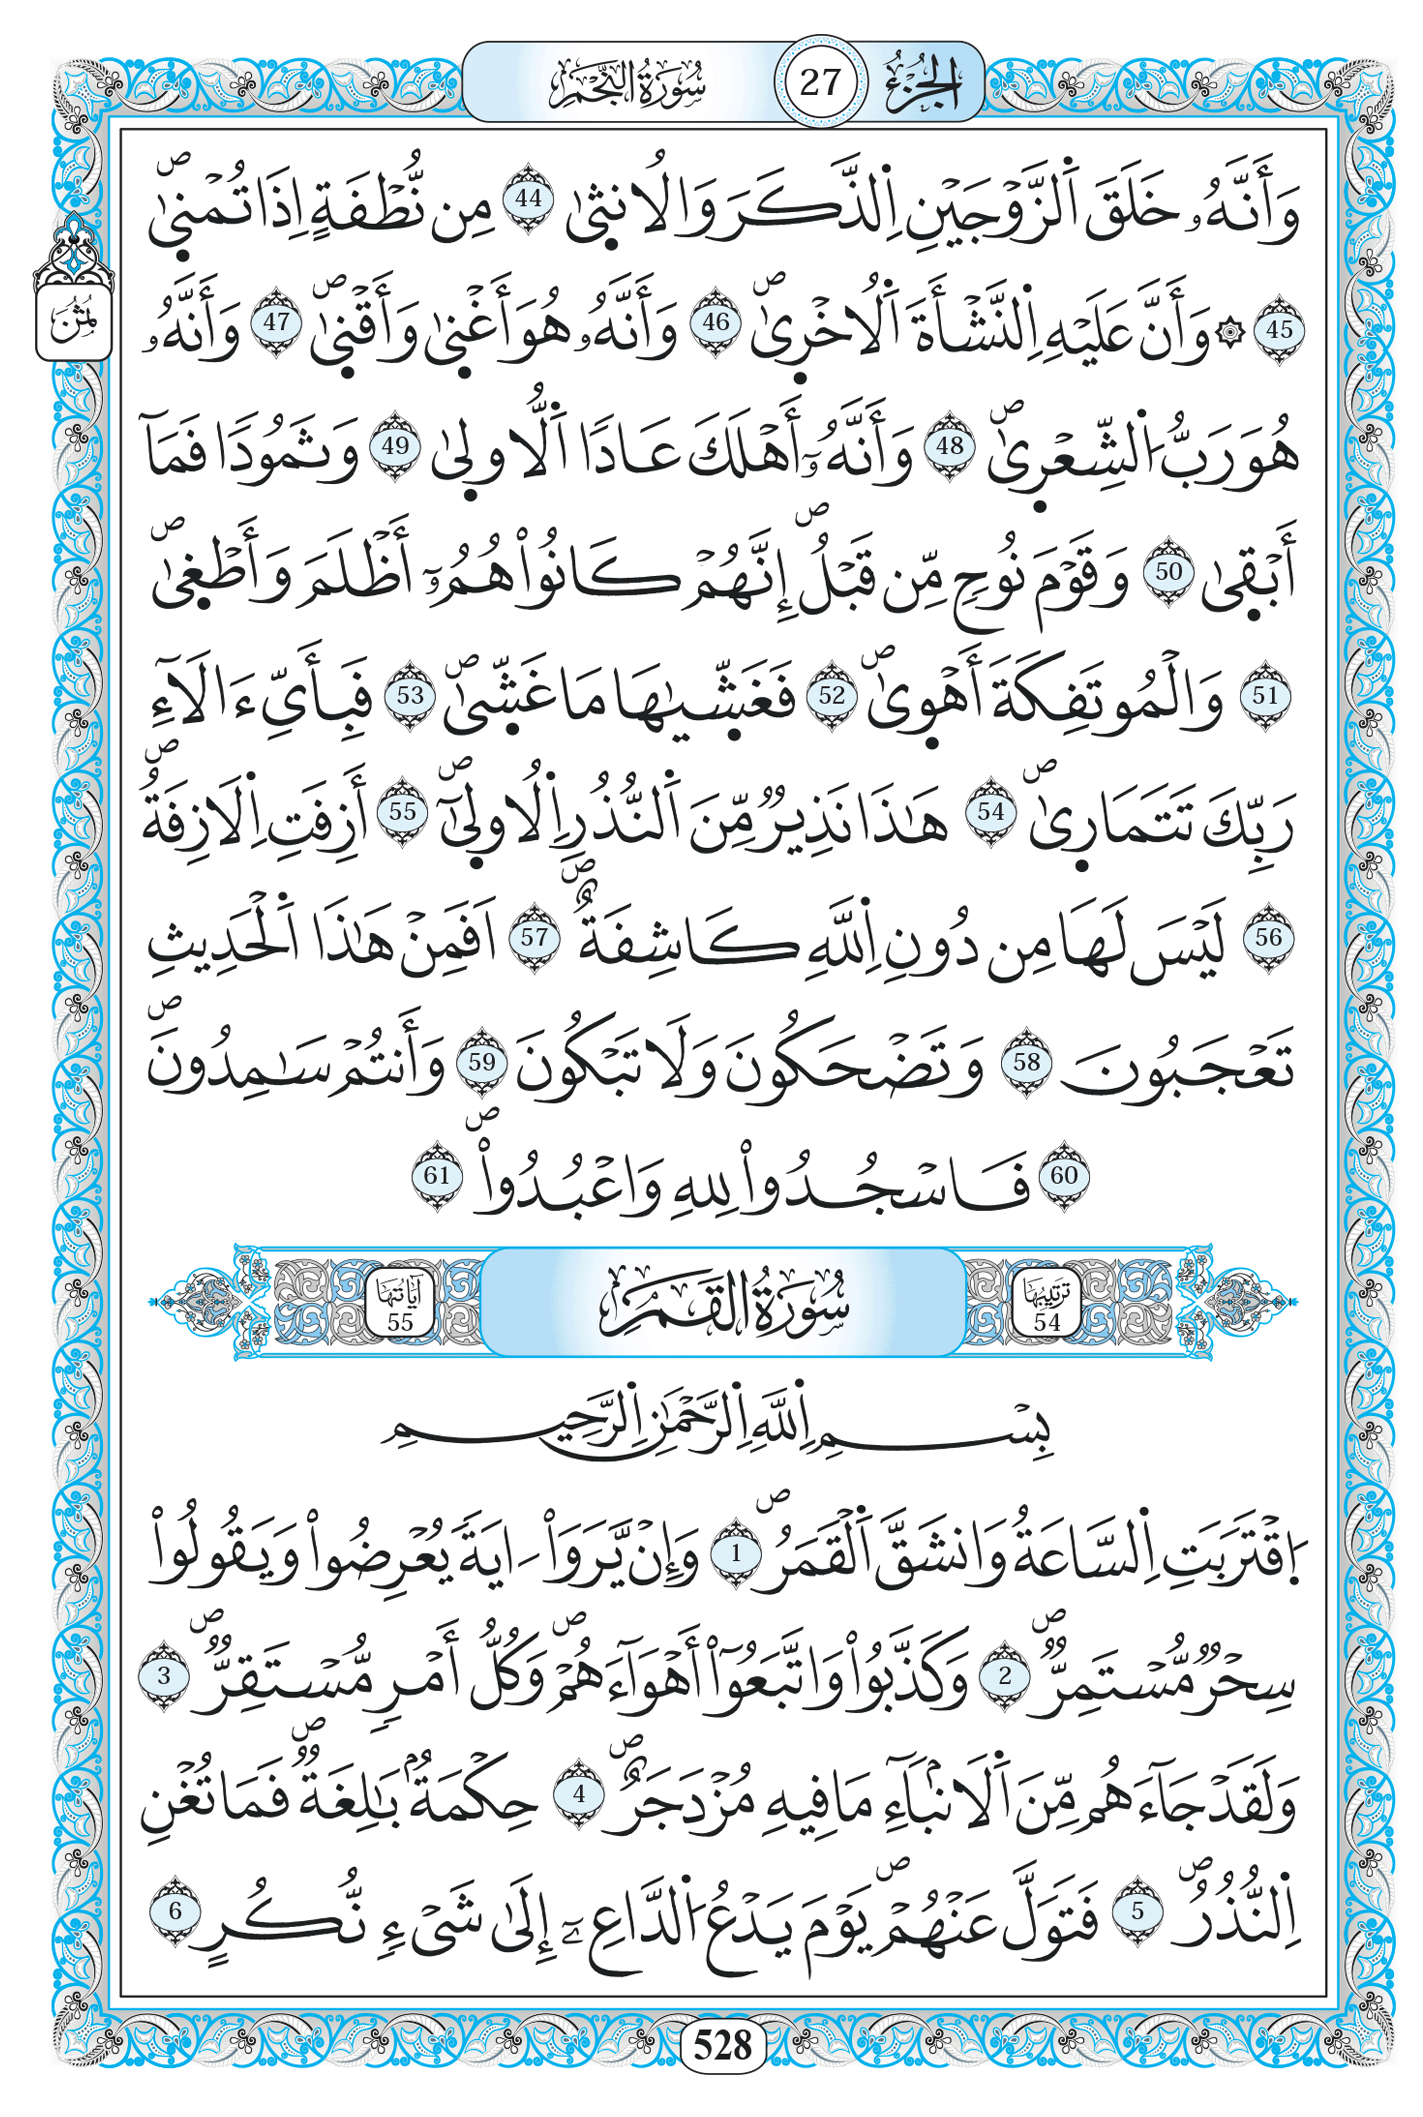 الجزء 27 سورة النجم
وَأَنَّهُۥ خَلَقَ اَ۬لزَّوْجَيْنِ اِ۬لذَّكَرَ وَالُانث۪ىٰ 44 مِن نُّطْفَةٍ اِذَا تُمْن۪ىٰۖ
ثُمُن
45 ۞ وَأَنَّ عَلَيْهِ اِ۬لنَّشْأَةَ اَ۬لُاخْر۪ىٰۖ 46 وَأَنَّهُۥ هُوَ أَغْن۪ىٰ وَأَقْن۪ىٰۖ 47 وَأَنَّهُۥ
هُوَ رَبُّ اُ۬لشِّعْر۪ىٰۖ 48 وَأَنَّهُۥٓ أَهْلَكَ عَاداً اَ۬لُّاول۪ىٰ 49 وَثَمُودًا فَمَآ
أَبْق۪ىٰ 50 وَقَوْمَ نُوحٍ مِّن قَبْلُۖ إِنَّهُمْ كَانُواْ هُمُۥٓ أَظْلَمَ وَأَطْغ۪ىٰۖ
51 وَالْمُوتَفِكَةَ أَهْو۪ىٰۖ 52 فَغَشّ۪يٰهَا مَا غَشّ۪ىٰۖ 53 فَبِأَيِّ ءَالَآءِ
رَبِّكَ تَتَمَار۪ىٰۖ 54 هَٰذَا نَذِيرٌ مِّنَ اَ۬لنُّذُرِ اِ۬لُاول۪ىٰٓۖ 55 أَزِفَتِ اِ۬لَازِفَةُۖ
56 لَيْسَ لَهَا مِن دُونِ اِ۬للَّهِ كَاشِفَةٌۖ 57 اَفَمِنْ هَٰذَا اَ۬لْحَدِيثِ
تَعْجَبُونَ 58 وَتَضْحَكُونَ وَلَا تَبْكُونَ 59 وَأَنتُمْ سَٰمِدُونَۖ
60 فَاسْجُدُواْ لِلهِ وَاعْبُدُواْۖ 61
ترتيبها 54 سورة القمر آياتها 55
بِسْمِ اِ۬للَّهِ اِ۬لرَّحْمَٰنِ اِ۬لرَّحِيمِ
اِ۪قْتَرَبَتِ اِ۬لسَّاعَةُ وَانشَقَّ اَ۬لْقَمَرُۖ 1 وَإِنْ يَّرَوَاْ اٰيَةً يُعْرِضُواْ وَيَقُولُواْ
سِحْرٌ مُّسْتَمِرٌّۖ 2 وَكَذَّبُواْ وَاتَّبَعُوٓاْ أَهْوَآءَهُمْۖ وَكُلُّ أَمْرٍ مُّسْتَقِرٌّۖ 3
وَلَقَدْ جَآءَهُم مِّنَ اَ۬لَانۢبَآءِ مَا فِيهِ مُزْدَجَرٌۖ 4 حِكْمَةُۢ بَٰلِغَةٌۖ فَمَا تُغْنِ
اِ۬لنُّذُرُۖ 5 فَتَوَلَّ عَنْهُمْۖ يَوْمَ يَدْعُ اُ۬لدَّاعِۦٓ إِلَىٰ شَيْءٍ نُّكُرٍ 6
528